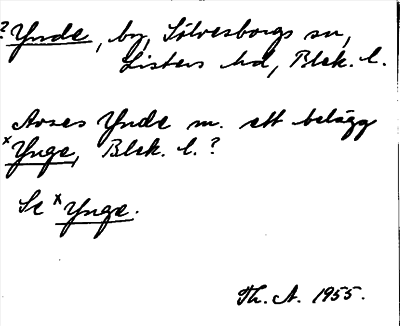 ? Ynde, by, Sölvesborgs sn,
Listers hd, Blek. l.
Avses Ynde m. ett belägg
ˣYnge, Blek. l.?
Se ˣYnge.
Th. A. 1955.